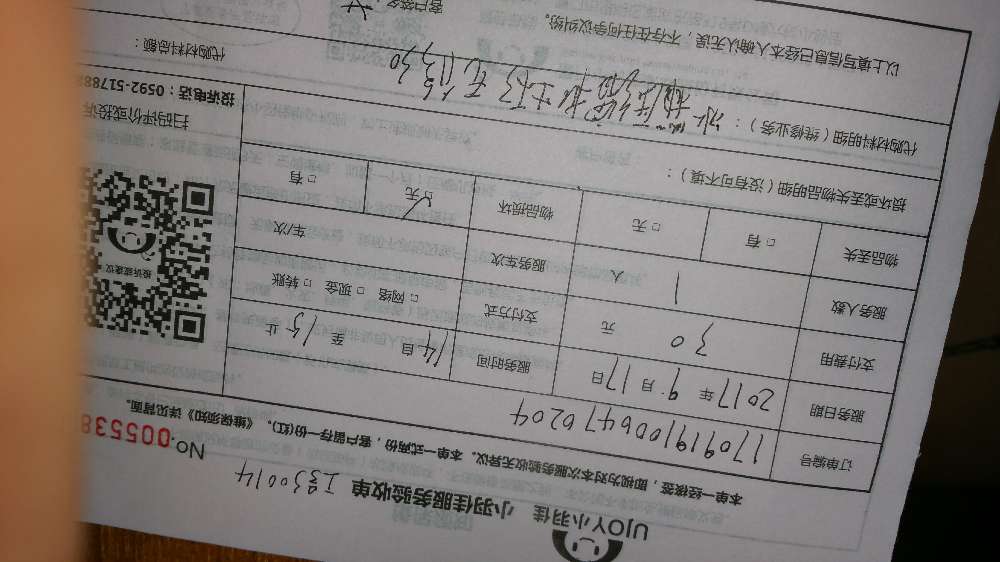 UJOY小羽佳 小羽佳服务验收单 工号30014
本单一经核签，即视为对本次服务验收无异议。本单一式两份，客户留存一份(红)。《维保须知》详见背面。
No.005538
订单编号 170919100647 0204
服务日期 2017年9月17日 服务时间 14自 至 15 止
支付费用 30 元 支付方式 □ 网络 □ 现金 □ 转账
服务人数 1 人 服务车次 车/次
物品丢失 □ 有 □ 无 物品损坏 ☑ 无 □ 有
损坏或丢失物品明细（没有可不填）：
代购材料明细（维修业务）：
代购材料总额：
以上填写信息已经本人确认无误，不存在任何争议纠纷。
客户签名
投诉或建议
扫码评价或投诉
投诉电话：0592-51788